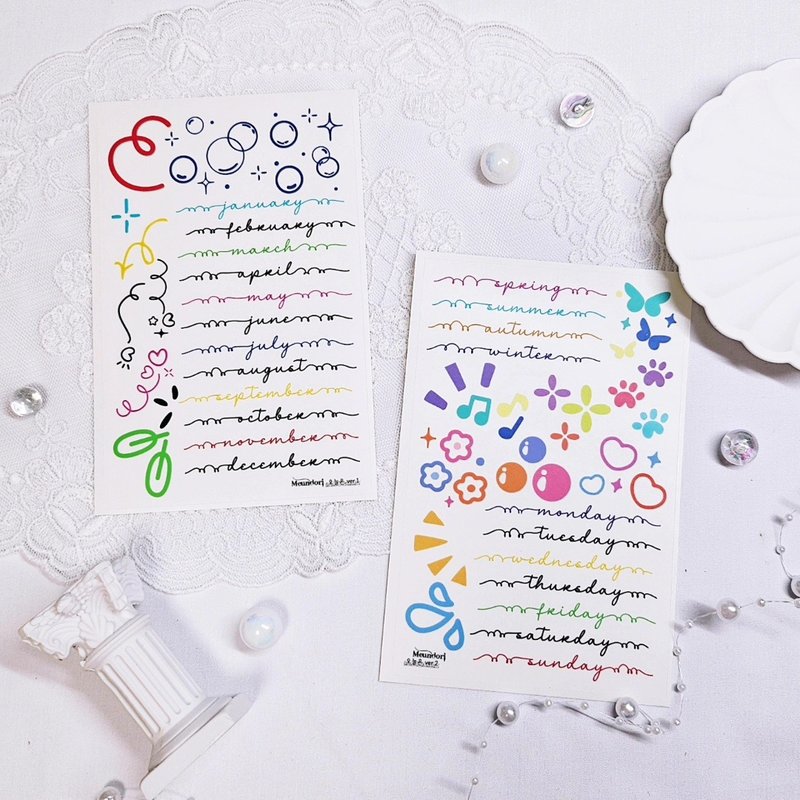 january
february
march
april
may
june
july
august
september
october
november
december
Meundori
ver.1
spring
summer
autumn
winter
monday
tuesday
wednesday
thursday
friday
saturday
sunday
Meundori
ver.2